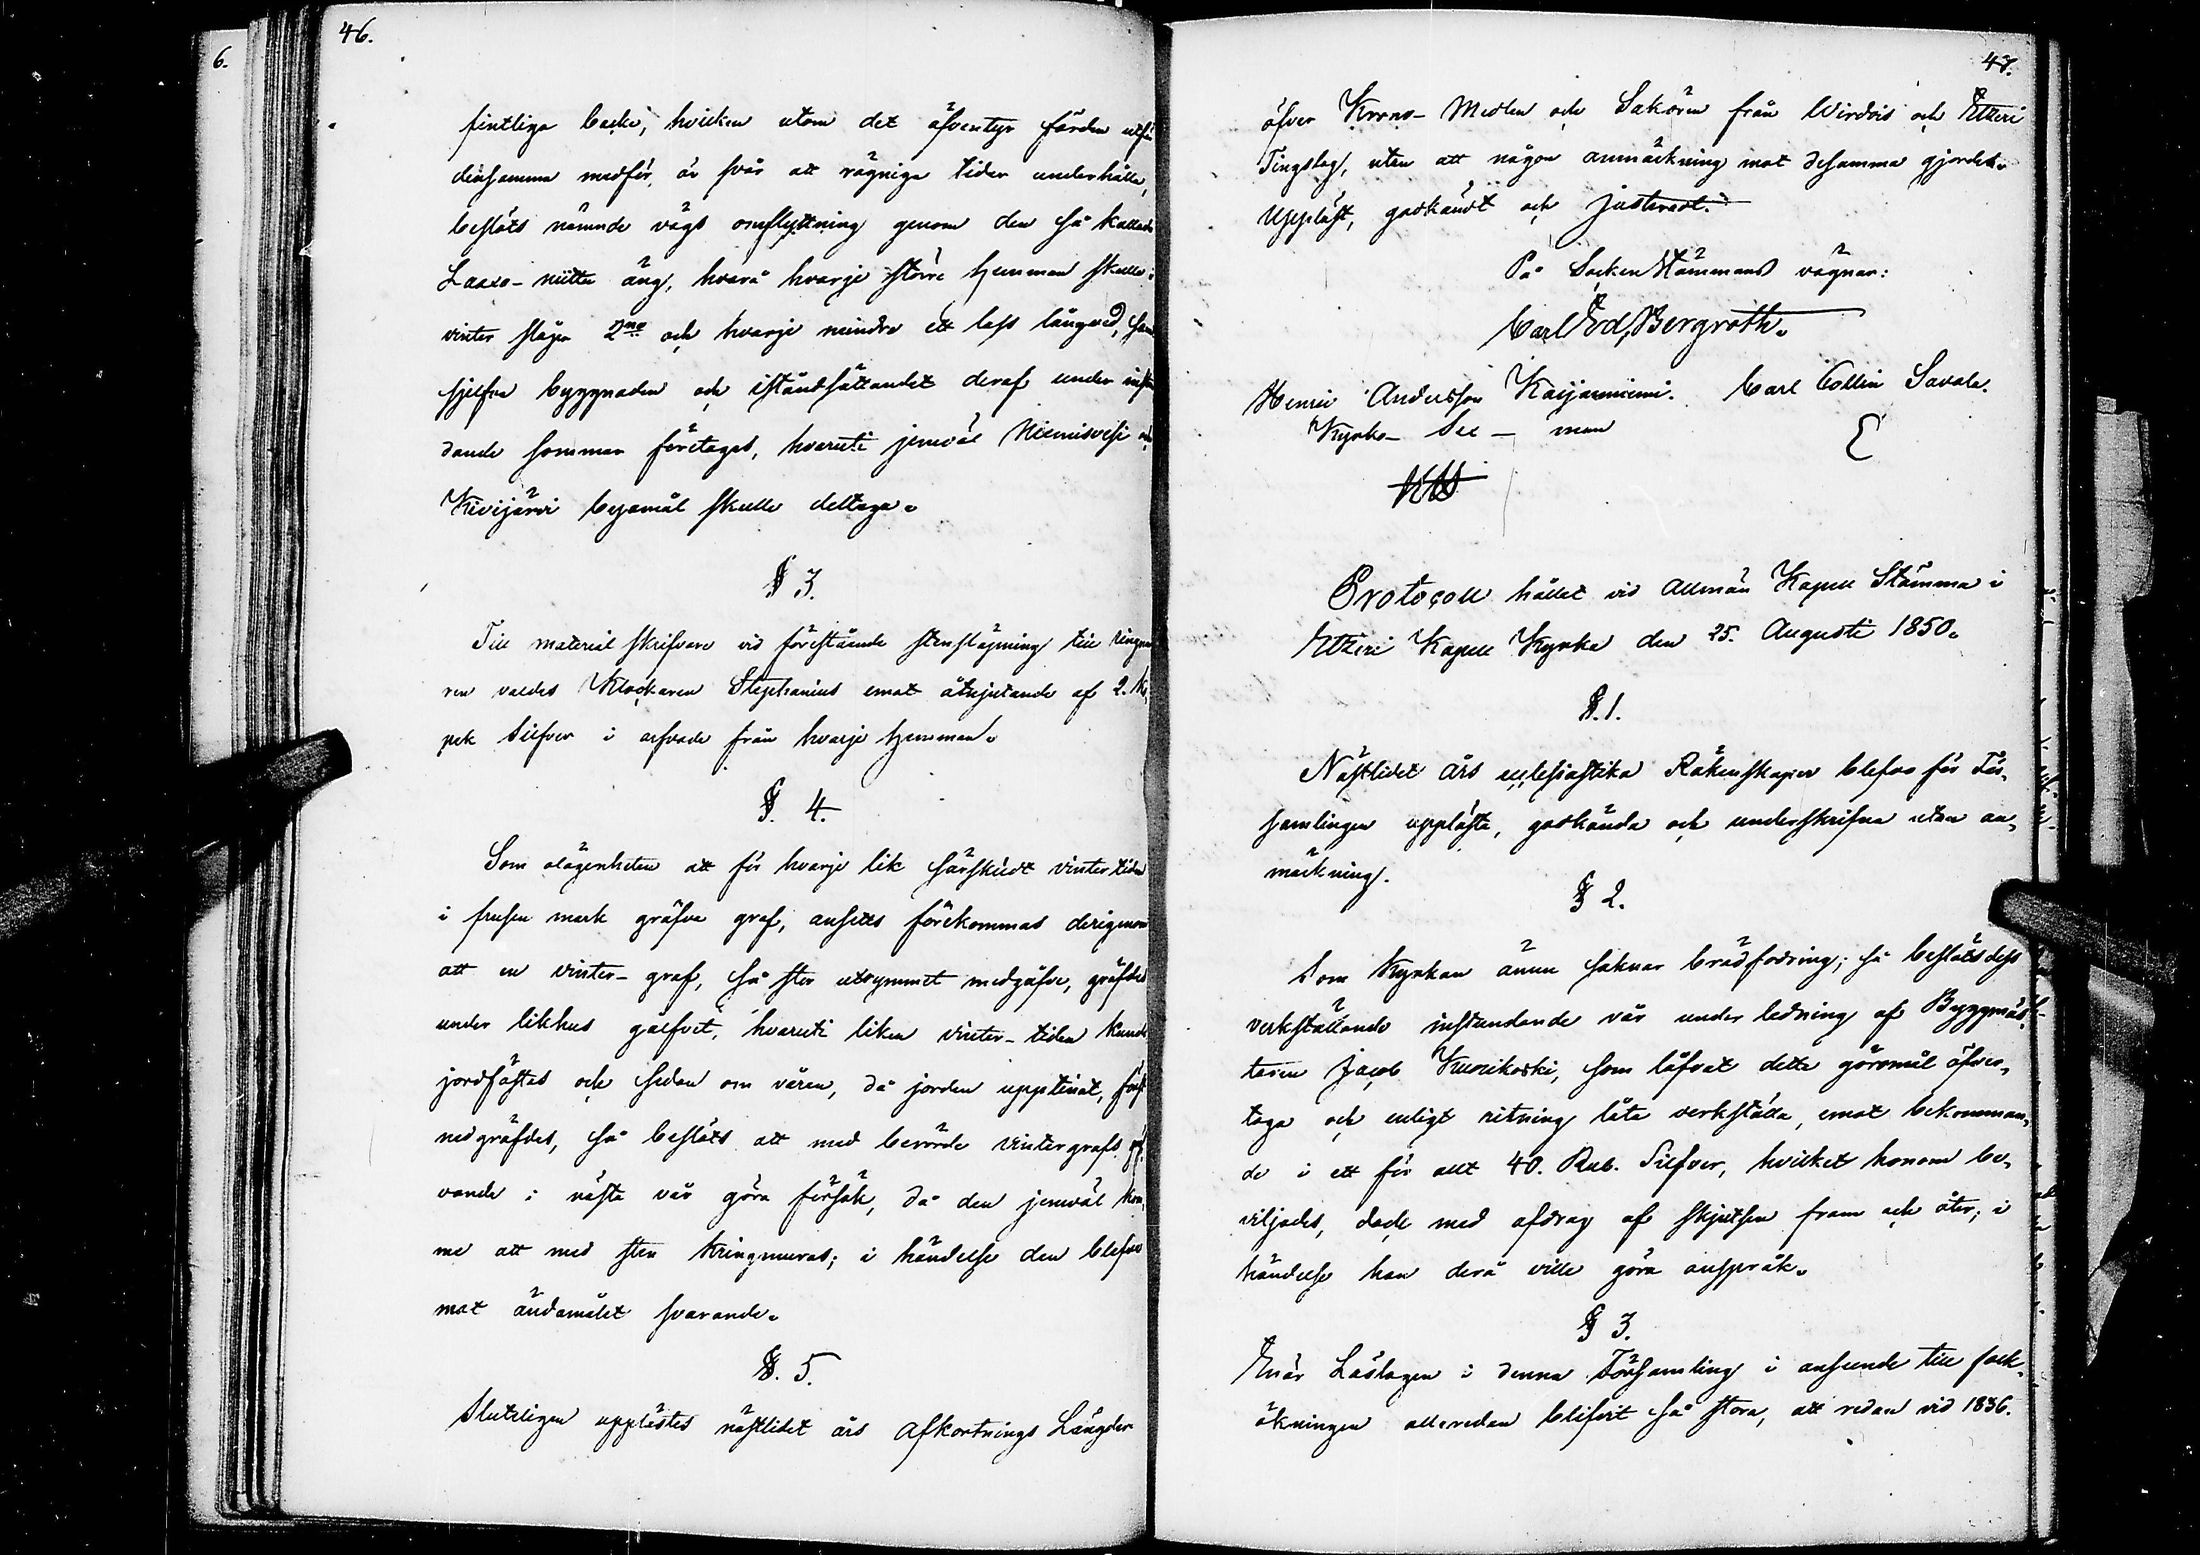 46.
fintliga backe, hvilken utom det äfventyr färden utför
densamma medför, är svår att rägniga tider underhålla,
beslöts nämnde vägs omflyttning genom den så kallade
Laaxo-niitti äng, hvarå hvarje större hemman skulle i
vinter släpa 2ne och hvarje mindre ett lass långved, samt
sjelfva byggnaden och iståndsättandet deraf under instun
dande sommar företagas, hvaruti jemväl Niemisvesi och
Kivijärvi byamål skulle deltaga.
§ 3.
Till material skrifvare vid förestående stensläpning till ringmu
ren valdes Klockaren Stephanius emot åtnjutande af 2. Ko,
pek Silfver i arfvode från hvarje hemman.
§. 4.
Som olägenheten att för hvarje lik särskildt vintertiden
i frusen mark gräfva graf, ansetts förekommas derigenom
att en vinter-graf, så stor utrymmet medgåfve, gräfdes
under likhus golfvet, hvaruti liken vinter-tiden kunde
jordfästas och sedan om våren, då jorden upptinat, först
nedgräfdes, så beslöts att med berörde vintergrafs gräf
vande i nästa vår göra försök, då den jemväl kom,
me att med sten kringmuras; i händelse den blefve
mot ändamålet svarande.
§. 5.
Slutligen upplästes nästlidet års Afkortnings Längder
47.
öfver Krono-Medlen och Saköron från Wirdois och Etseri
Tingslag, utan att någon anmärkning mot desamma gjordes.
Uppläst, godkändt och justeradt.
På Sockenstämmans vägnar:
Carl Ed. Bergroth.
Henric Andersson Kaijanniemi. Carl Collin Savola.
Kyrko- Sex - man
Protocoll hållet vid Allmän Kapell Stämma i
Etseri Kapell Kyrka den 25. Augusti 1850.
§. 1.
Nästlidet års ecclesiastika Räkenskaper blefvo för För,
samlingen upplästa, godkända och underskrifna utan an,
märkning.
§ 2.
Som Kyrkan ännu saknar brädfodring; så beslöts dess
verkställande instundande vår under ledning af Byggmäs,
taren Jacob Kuorikoski, som låfvat detta göromål öfver,
taga och enligt ritning låta verkställa, emot bekomman,
de i ett för allt 40. Rub. Silfver, hvilket honom be,
viljades, dock med afdrag af skjutsen fram och åter, i
händelse han derå ville göra anspråk.
§ 3.
Enär Läslagen i denna Församling i anseende till folk,
ökningen alleredan blifvit så stora, att redan vid 1836.